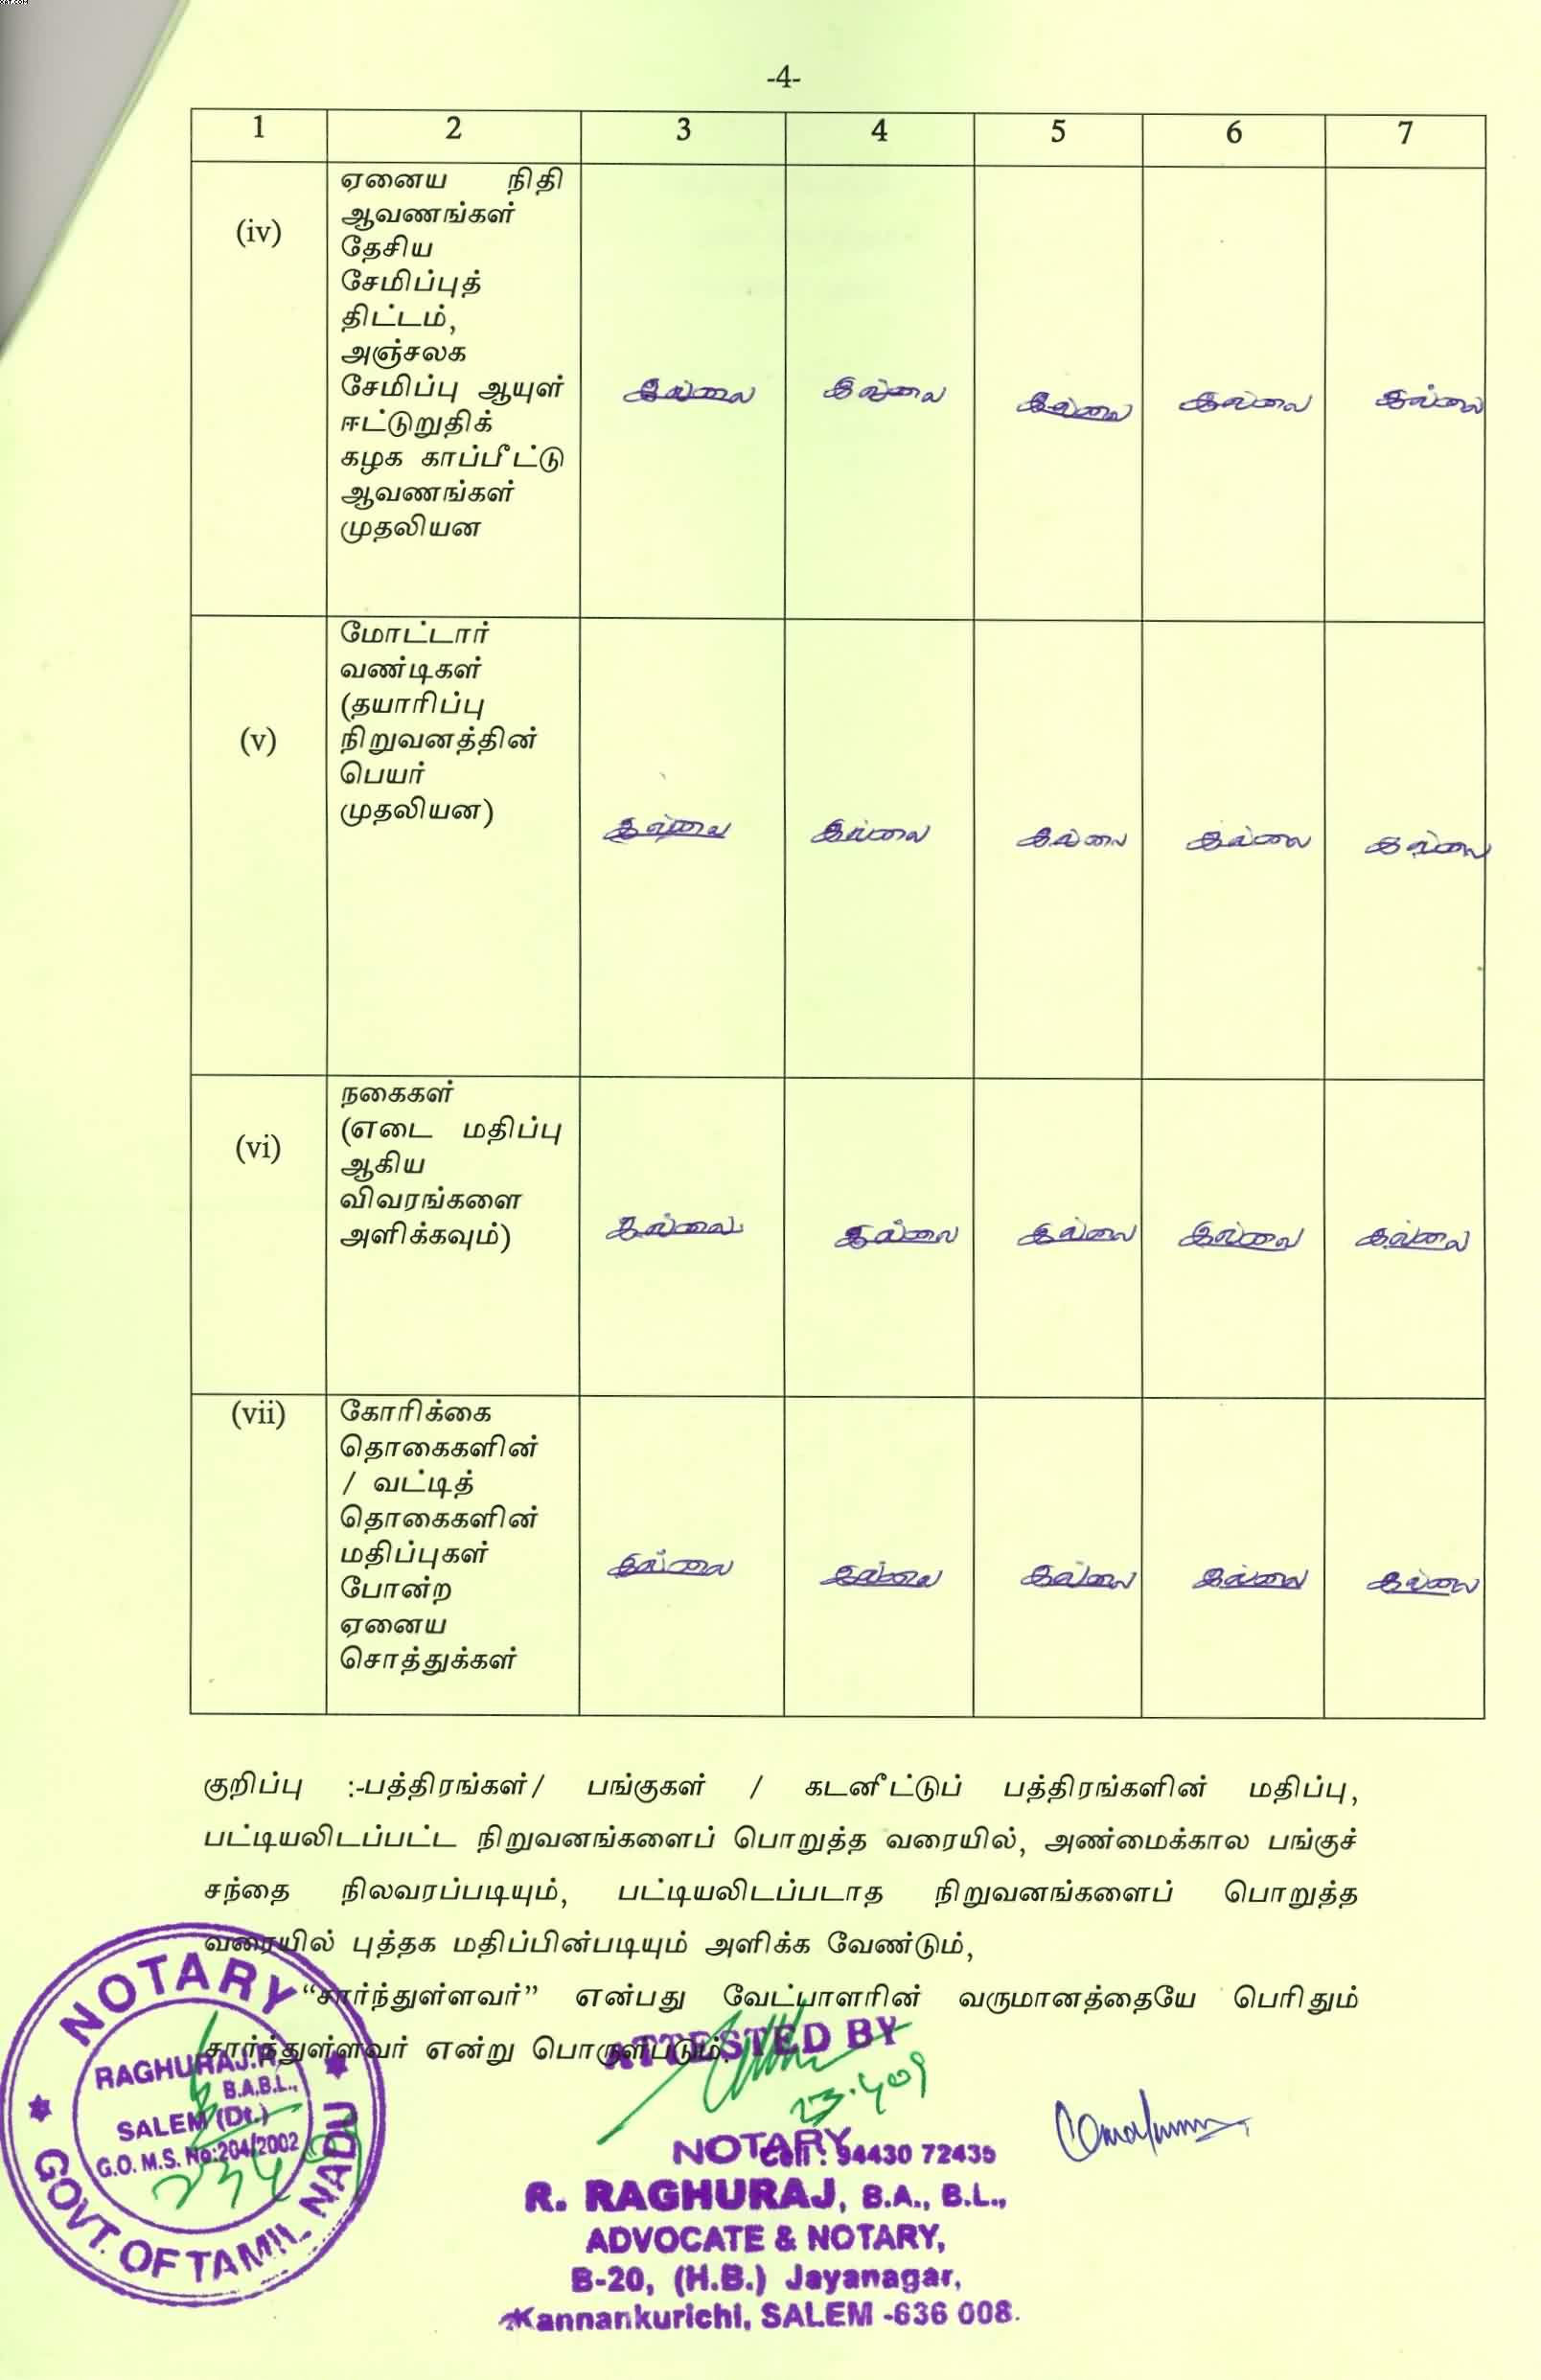 -4-
1 2 3 4 5 6 7
(iv)
ஏனைய நிதி
ஆவணங்கள்
தேசிய
சேமிப்புத்
திட்டம்,
அஞ்சலக
சேமிப்பு ஆயுள்
ஈட்டுறுதிக்
கழக காப்பீட்டு
ஆவணங்கள்
முதலியன
இல்லை இல்லை இல்லை இல்லை இல்லை
(v)
மோட்டார்
வண்டிகள்
(தயாரிப்பு
நிறுவனத்தின்
பெயர்
முதலியன)
இல்லை இல்லை இல்லை இல்லை இல்லை
(vi)
நகைகள்
(எடை மதிப்பு
ஆகிய
விவரங்களை
அளிக்கவும்)
இல்லை இல்லை இல்லை இல்லை இல்லை
(vii)
கோரிக்கை
தொகைகளின்
/ வட்டித்
தொகைகளின்
மதிப்புகள்
போன்ற
ஏனைய
சொத்துக்கள்
இல்லை இல்லை இல்லை இல்லை இல்லை
குறிப்பு :-பத்திரங்கள்/ பங்குகள் / கடனீட்டுப் பத்திரங்களின் மதிப்பு,
பட்டியலிடப்பட்ட நிறுவனங்களைப் பொறுத்த வரையில், அண்மைக்கால பங்குச்
சந்தை நிலவரப்படியும், பட்டியலிடப்படாத நிறுவனங்களைப் பொறுத்த
வரையில் புத்தக மதிப்பின்படியும் அளிக்க வேண்டும்,
“சார்ந்துள்ளவர்” என்பது வேட்பாளரின் வருமானத்தையே பெரிதும்
சார்ந்துள்ளவர் என்று பொருள்படும்.
NOTARY
RAGHURAJ.R,
B.A.B.L.,
SALEM (Dt.)
G.O. M.S. No:204/2002
GOVT. OF TAMIL NADU
ATTESTED BY
23.4.09
NOTARY
Cell : 94430 72435
R. RAGHURAJ, B.A., B.L.,
ADVOCATE & NOTARY,
B-20, (H.B.) Jayanagar,
Kannankurichi, SALEM -636 008.